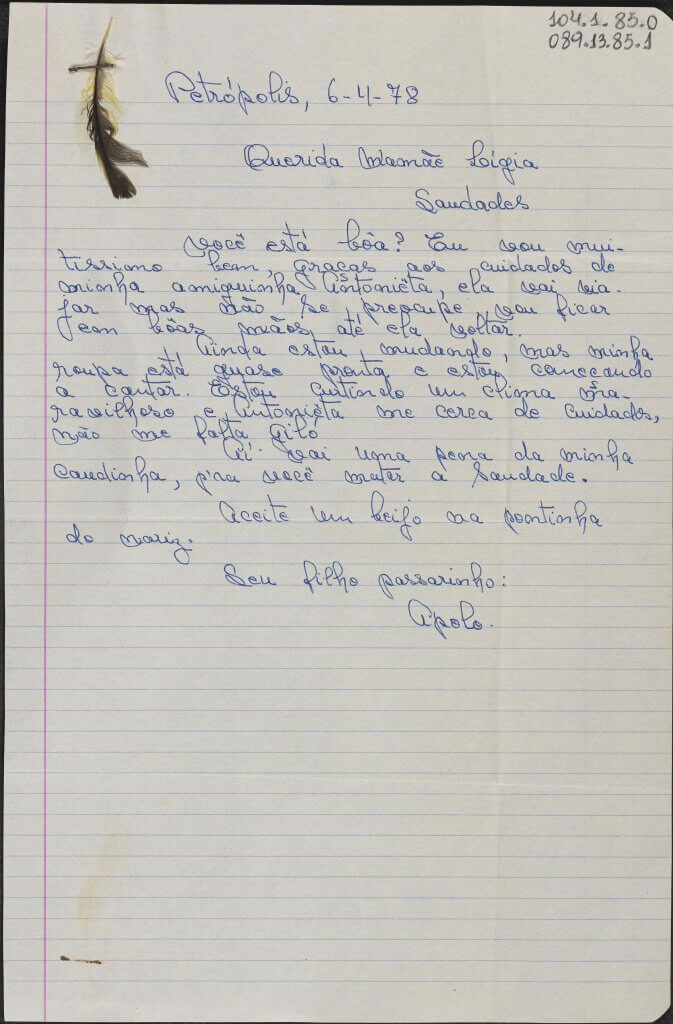 104.1.85.0
089.13.85.1
Petrópolis, 6-4-78
Querida Mamãe Lígia
Saudades
Você está bôa? Eu vou mui-
tissimo bem, graças aos cuidados de
minha amiguinha Antoniêta, ela vai via-
jar mas não se preocupe, vou ficar
em bôas mãos até ela voltar.
Ainda estou mudando, mas minha
roupa está quase pronta e estou começando
a cantar. Estou curtindo um clima ma-
ravilhoso e Antoniêta me cerca de cuidados,
não me falta giló.
Aí vai uma pena da minha
caudinha, p'ra você matar a saudade.
Aceite um beijo na pontinha
do nariz.
Seu filho passarinho:
Apolo.